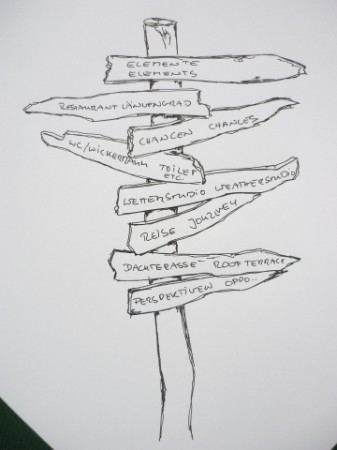 ELEMENTE
ELEMENTS
RESTAURANT LÄNGENGRAD
CHANCEN CHANCES
WC/WICKELRAUM TOILET
ETC.
WETTERSTUDIO WEATHERSTUDIO
REISE JOURNEY
DACHTERASSE ROOFTERRACE
PERSPEKTIVEN OPPO...